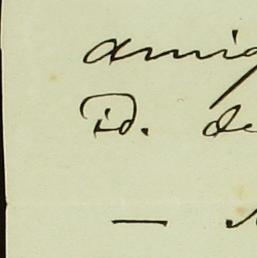 amig
id. de
—